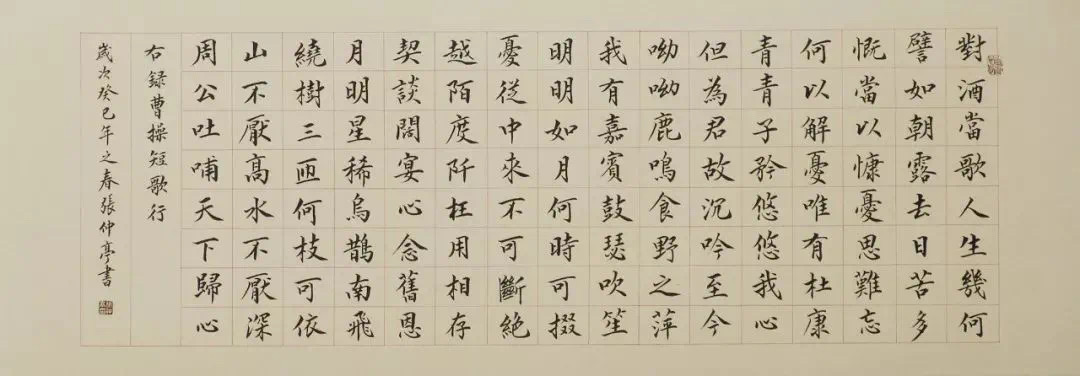 對酒當歌人生幾何
譬如朝露去日苦多
慨當以慷憂思難忘
何以解憂唯有杜康
青青子矜悠悠我心
但為君故沉吟至今
呦呦鹿鳴食野之萍
我有嘉賓鼓瑟吹笙
明明如月何時可掇
憂從中來不可斷絕
越陌度阡枉用相存
契談闊宴心念舊恩
月明星稀烏鵲南飛
繞樹三匝何枝可依
山不厭高水不厭深
周公吐哺天下歸心
右録曹操短歌行
歲次癸巳年之春張仲亭書